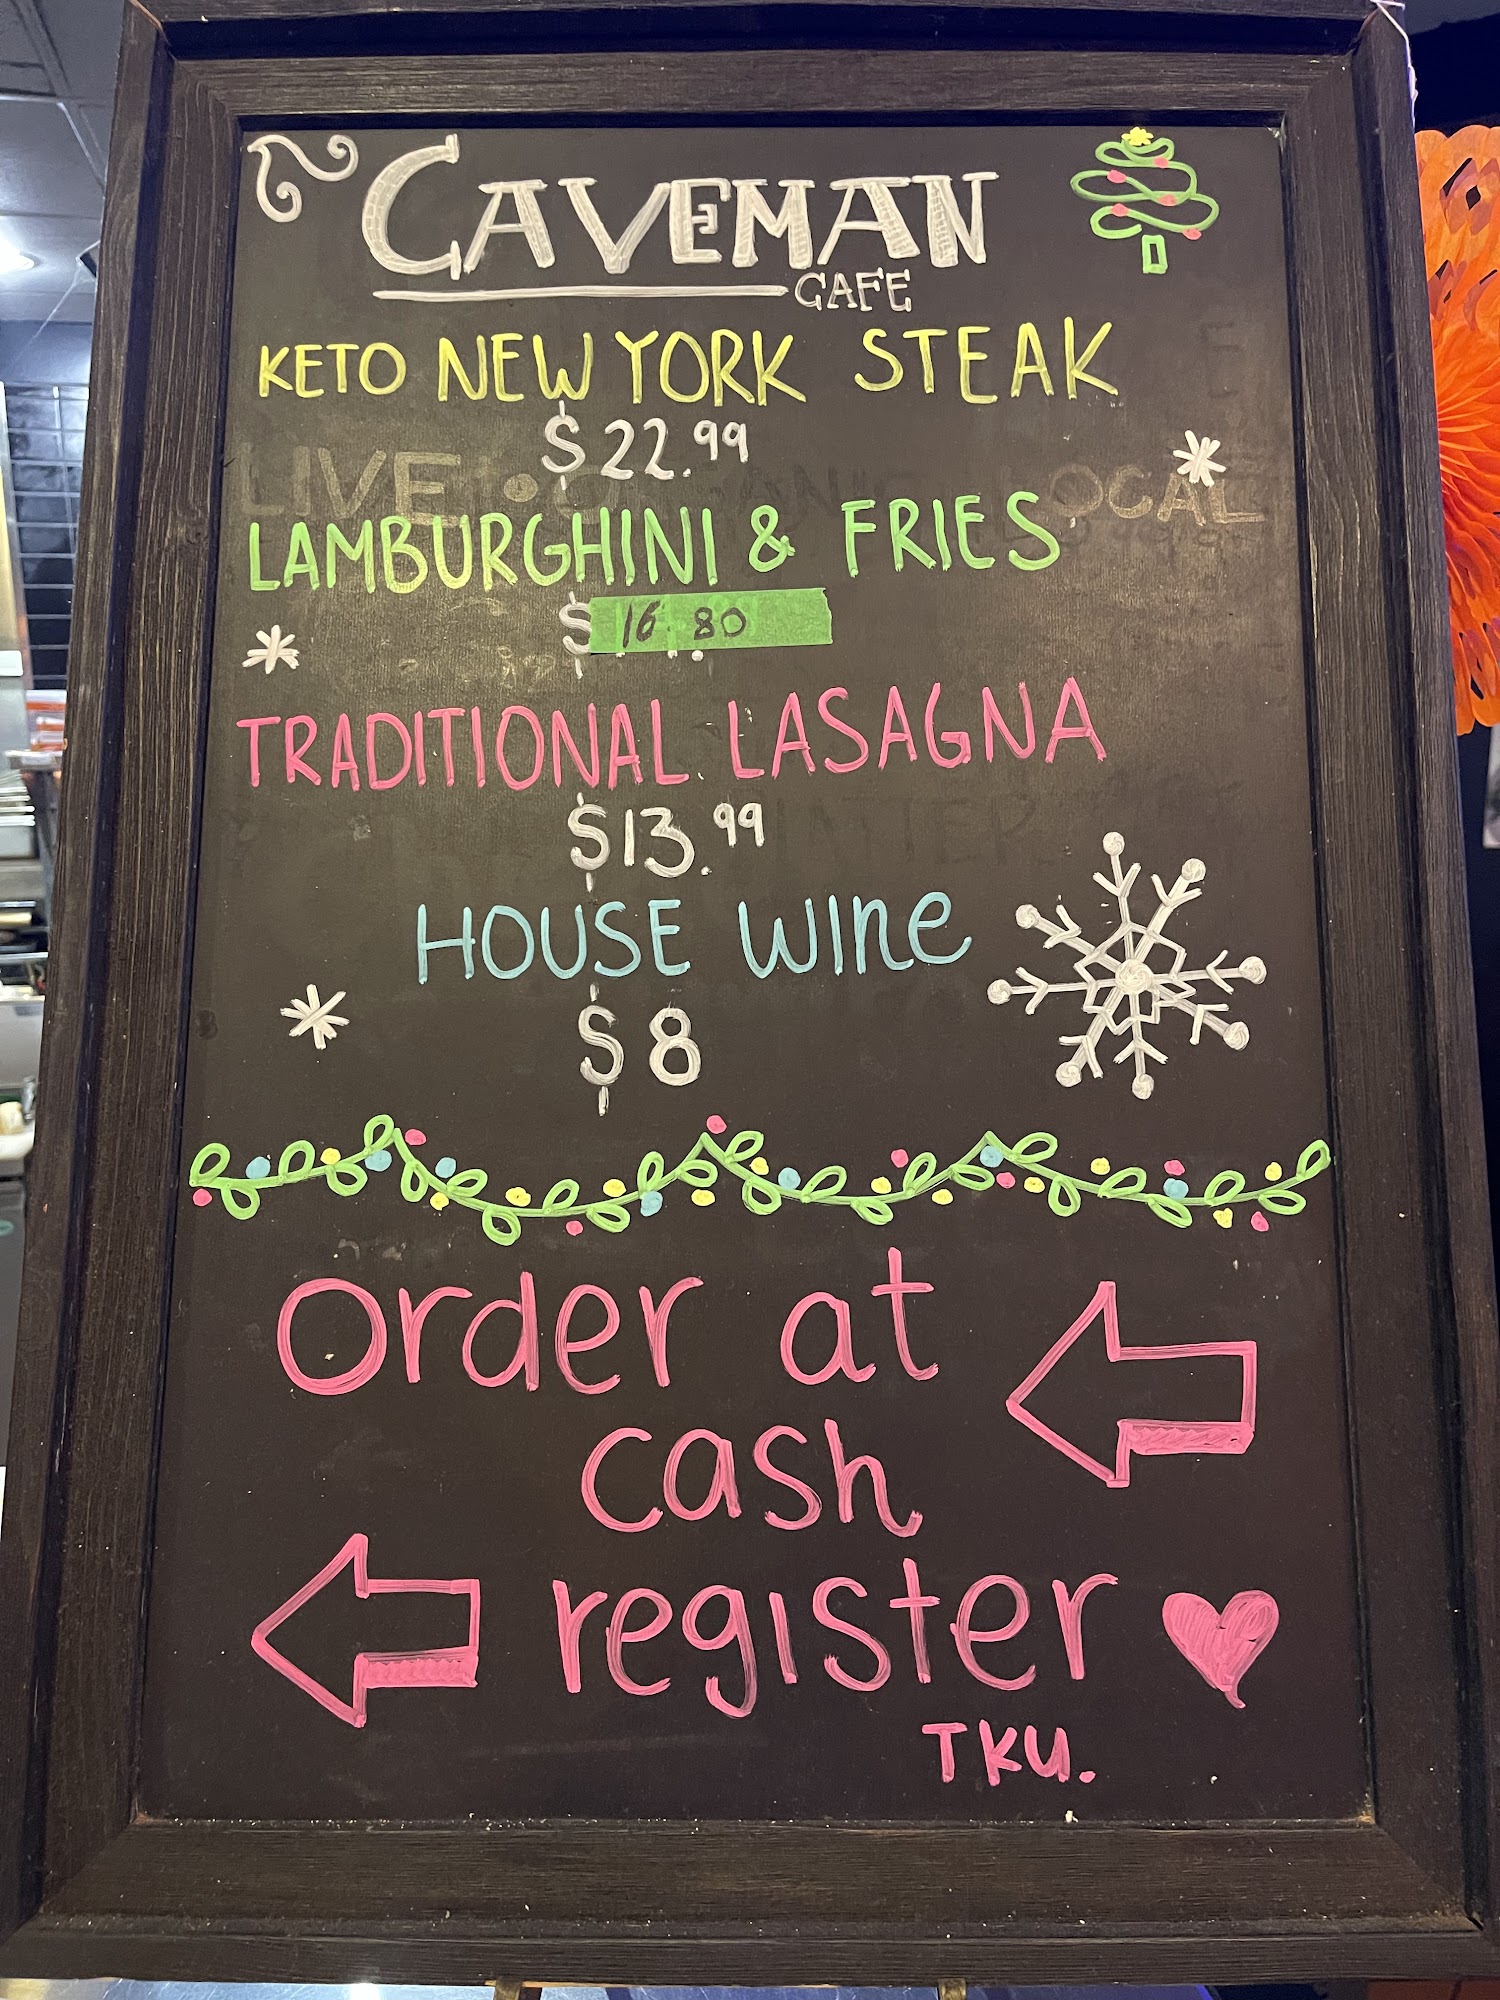 CAVEMAN
CAFE
KETO NEW YORK STEAK
$22.99
LIVE • LOCAL
LAMBURGHINI & FRIES
$ 16.80
TRADITIONAL LASAGNA
$13.99
HOUSE WINE
$8
Order at
cash
register
TKU.